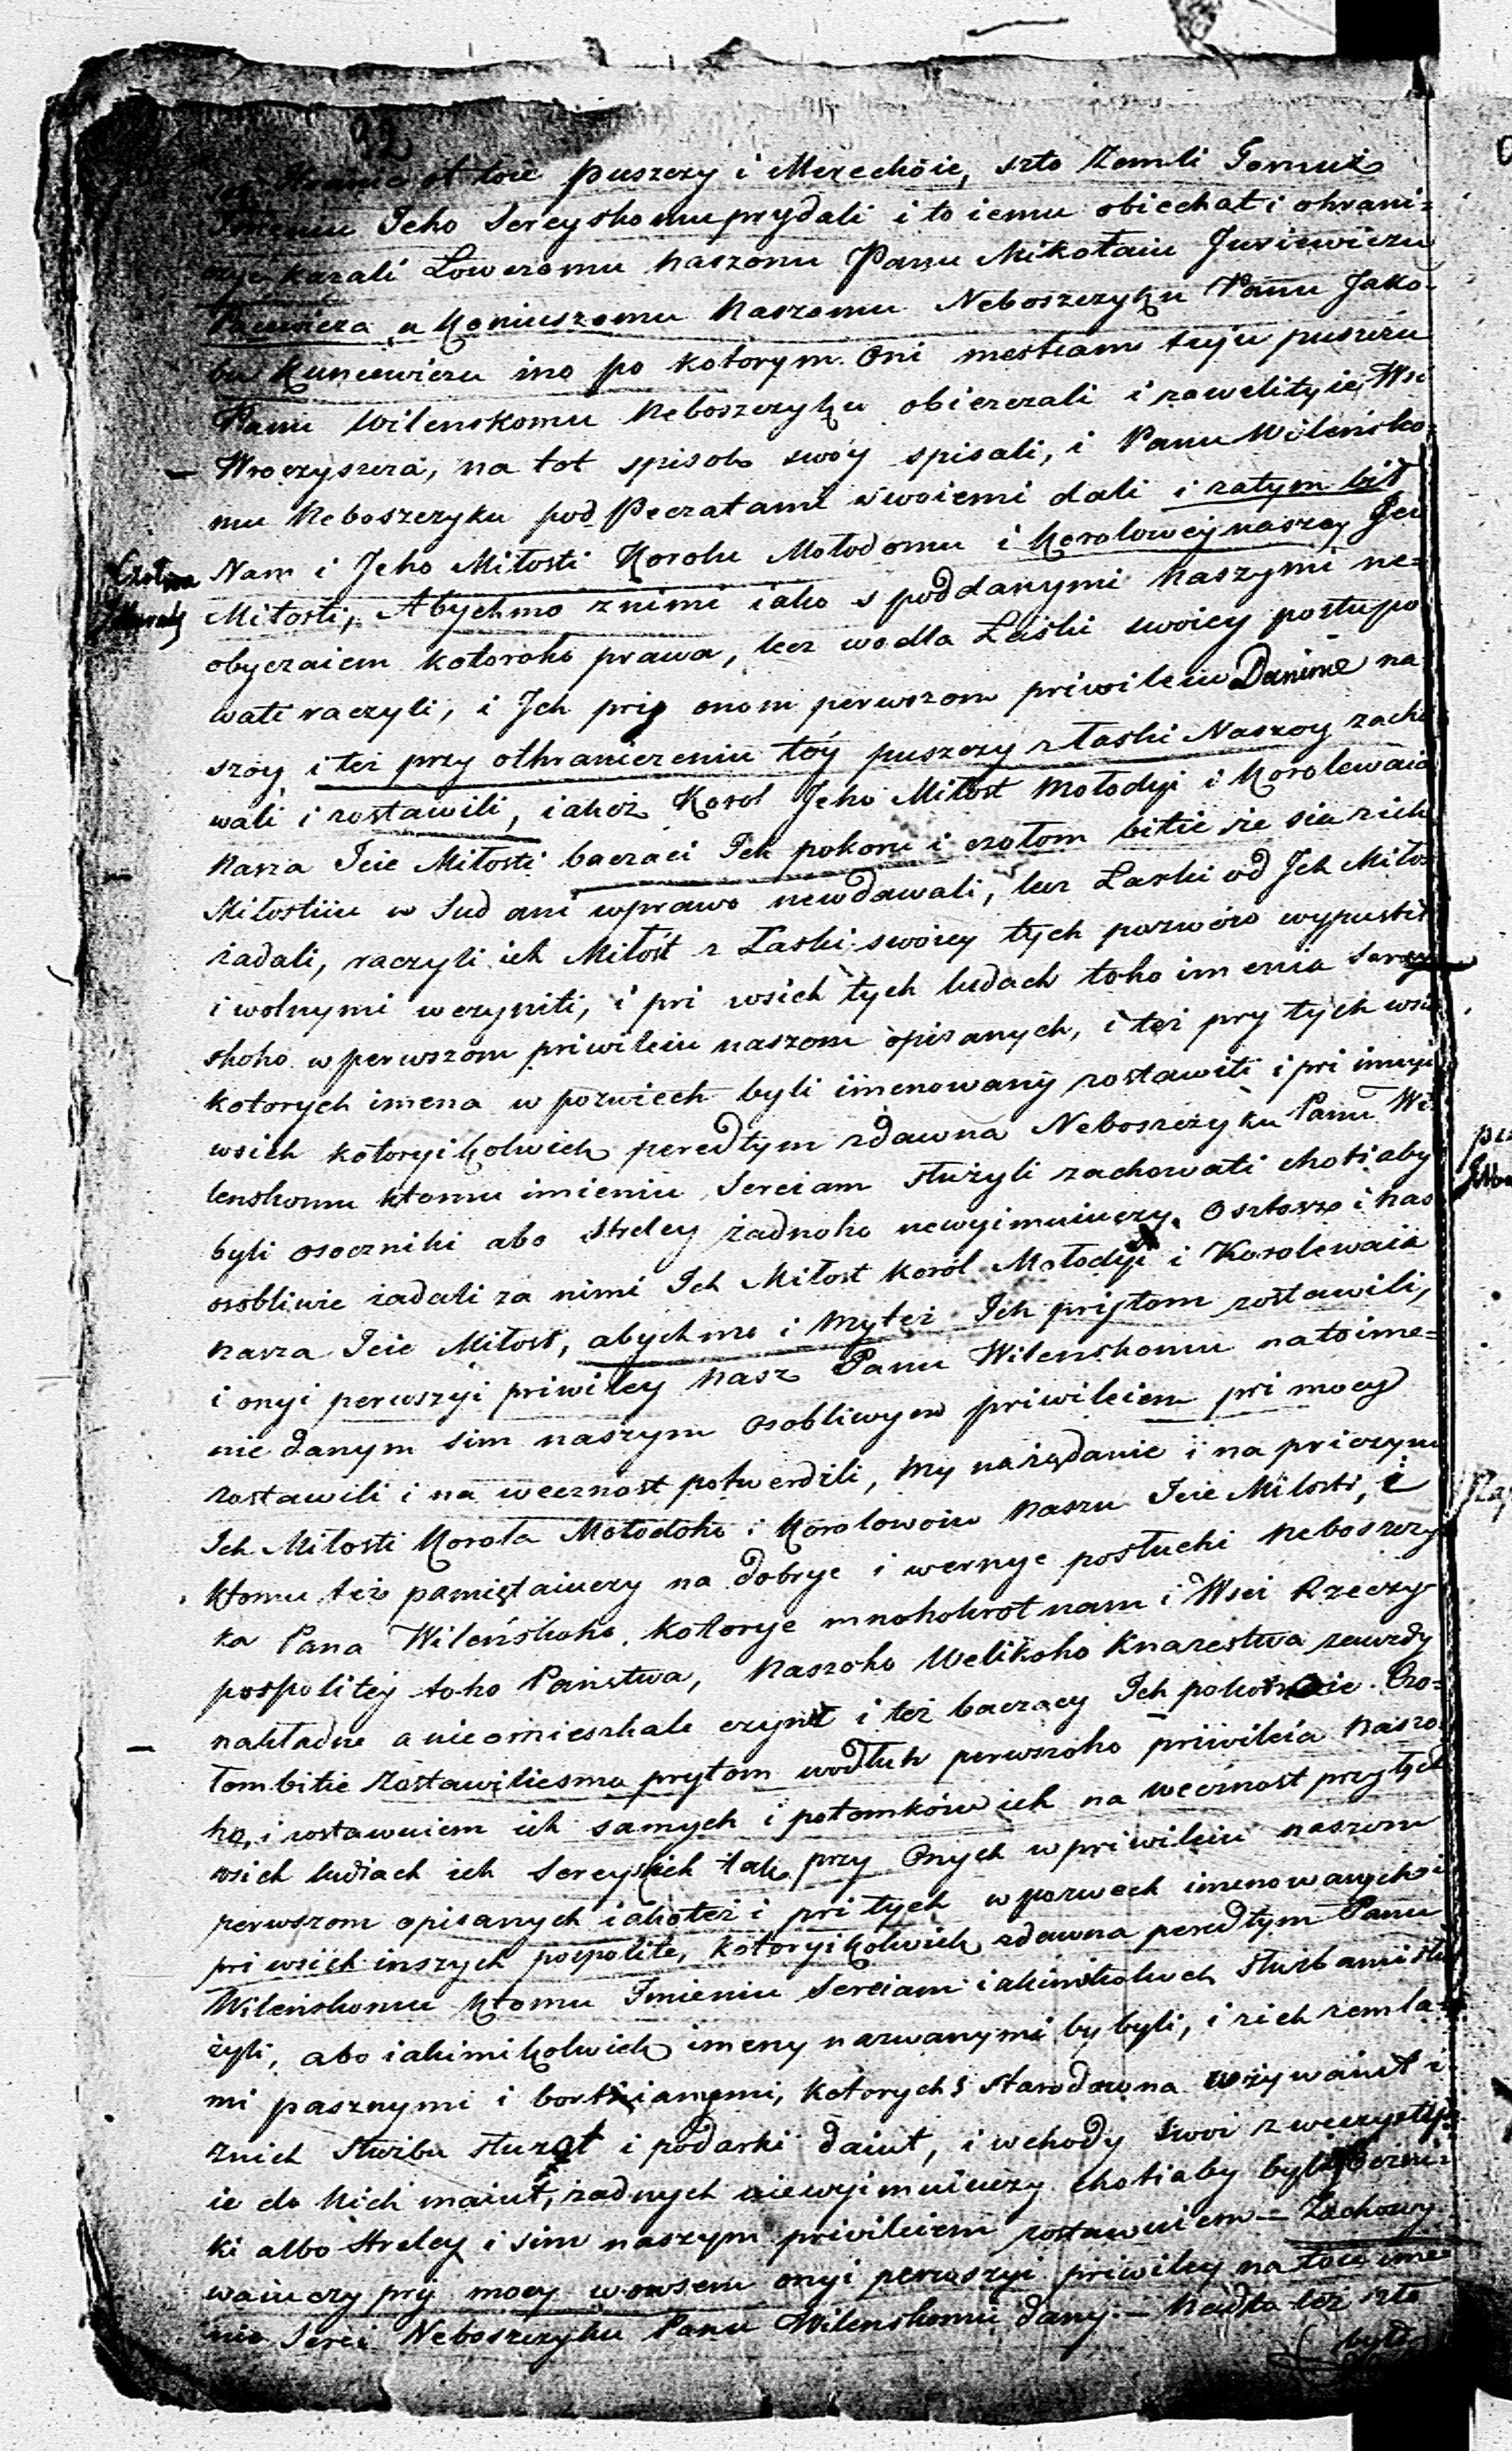 92
Hranic ot toie puszczy i Merechoie, szto Zemli Tomuż
Imeniu Jeho Sereyskomu prydali i to iemu obiechat i ohrani=
czyt kazali Łowczomu naszomu Panu Mikołaiu Jusiewiczu
Pacewicza, a Koniuszomu naszomu Neboszczyku Panu Jako=
bu Kuncewiczu ino po kotorym Oni mestam tuju puszczu
Panu Wilenskomu Neboszczyku obiezczali i zawelityie Wsi
Wroczyszcza, na tot spisok swóy spisali, i Panu Wileńsko=
mu Neboszczyku pod Peczatami swoiemi dali i zatym bił
Nam i Jeho Miłosti Korolu Mołodomu i Korolowey naszey Jei
Miłosti, Abychmo z nimi iako s poddanymi naszymi ne=
obyczaiem kotoroho prawa, lecz wodla Łaski swoiey postupo
wati raczyli, i Jch pry onom perwszom priwileiu Danine na
szoy, i też przy othraniczeniu tóy puszczy z Łaski Naszoy zacho
wali i zostawili, iakoż Korol Jeho Miłost Mołodyi i Korolewaia
nasza Jeie Miłosti baczaci Ich pokoru i czołom bitie że sia z ich
Miłostiu w Sud ani wprawo newdawali, lecz Łaski od Jch Miłos
żadali, raczyli ich Miłost z Łaski swoiey tych pozwów wypustit
i wolnymi uczyniti, i pri wsich tych ludach toho imenia Serey
skoho w perwszom priwileiu naszom opisanych, i też pry tych wsi
kotorych imena w pozwiech byli imenowany zostawiti i pri innyi
wsich kotoryikolwiek peredtym zdawna Neboszczyku Panu Wi
lenskomu ktomu imieniu Sereiam służyli zachowati chotiaby
byli osoczniki abo Strelcy żadnoho newyimuiuczy. O sztoż i nas
osobliwie żadali za nimi Ich Miłost Koról Mołodyi i Korolewaia
nasza Jeie Miłost, abychmo i my też Ich prytom zostawili,
i onyi perwszyi priwiley nasz Panu Wilenskomu natoime=
nie danym sim naszym osobliwym priwileiem pri mocy
zostawili i na wecznost potwerdili, My na żądanie i na priczynu
Ich Miłosti Korola Mołodoho i Korolowoiu naszu Jeie Miłosti, i
ktomu też pamiętaiuczy na dobrye i wernye posłuchi neboszczy
ka Pana Wileńskoho, kotorye mnohokrot nam i Wsei Rzeczy
pospolitéy toho Państwa, Naszoho Welikoho Knazestwa zawżdy
nakładne a nieomieszkale czynił i też baczacy Ich pokornoie Czo=
łombitie Zostawiliesmo prytom wodłuh perwszoho priwileia naszo
ho, i zostawuiem ich samych i potomków ich na wecznost przy tych
wsich ludiach ich Sereyskich tak przy Onych w priwileiu naszom
perwszom opisanych iako też i pri tych w pozwech imenowanych i
pri wsich inszych pospolite, kotoryikolwiek zdawna peredtym Panu
Wileńskomu ktomu Imieniu Sereiam iakimikolwek służbami słu
żyli, abo iakimikolwiek imeny nazwanymi by byli, i z ich zemla=
mi pasznymi i bortnianymi, kotorych s starodawna używaiut i
z nich służbu służat i podarki daiut, i wchody swoi z weczystyi
ie do nich maiut, żadnych niewyimuiuczy chotiaby byli Osoczni=
ki albo Strelcy i sim naszym priwileiem zostawuiem = Zachowy
waiuczy pry mocy wowsem onyi perwszyi priwiley na toie ime
nie Serei Neboszczyku Panu Wilenskomu dany. — Nadto też szto
było